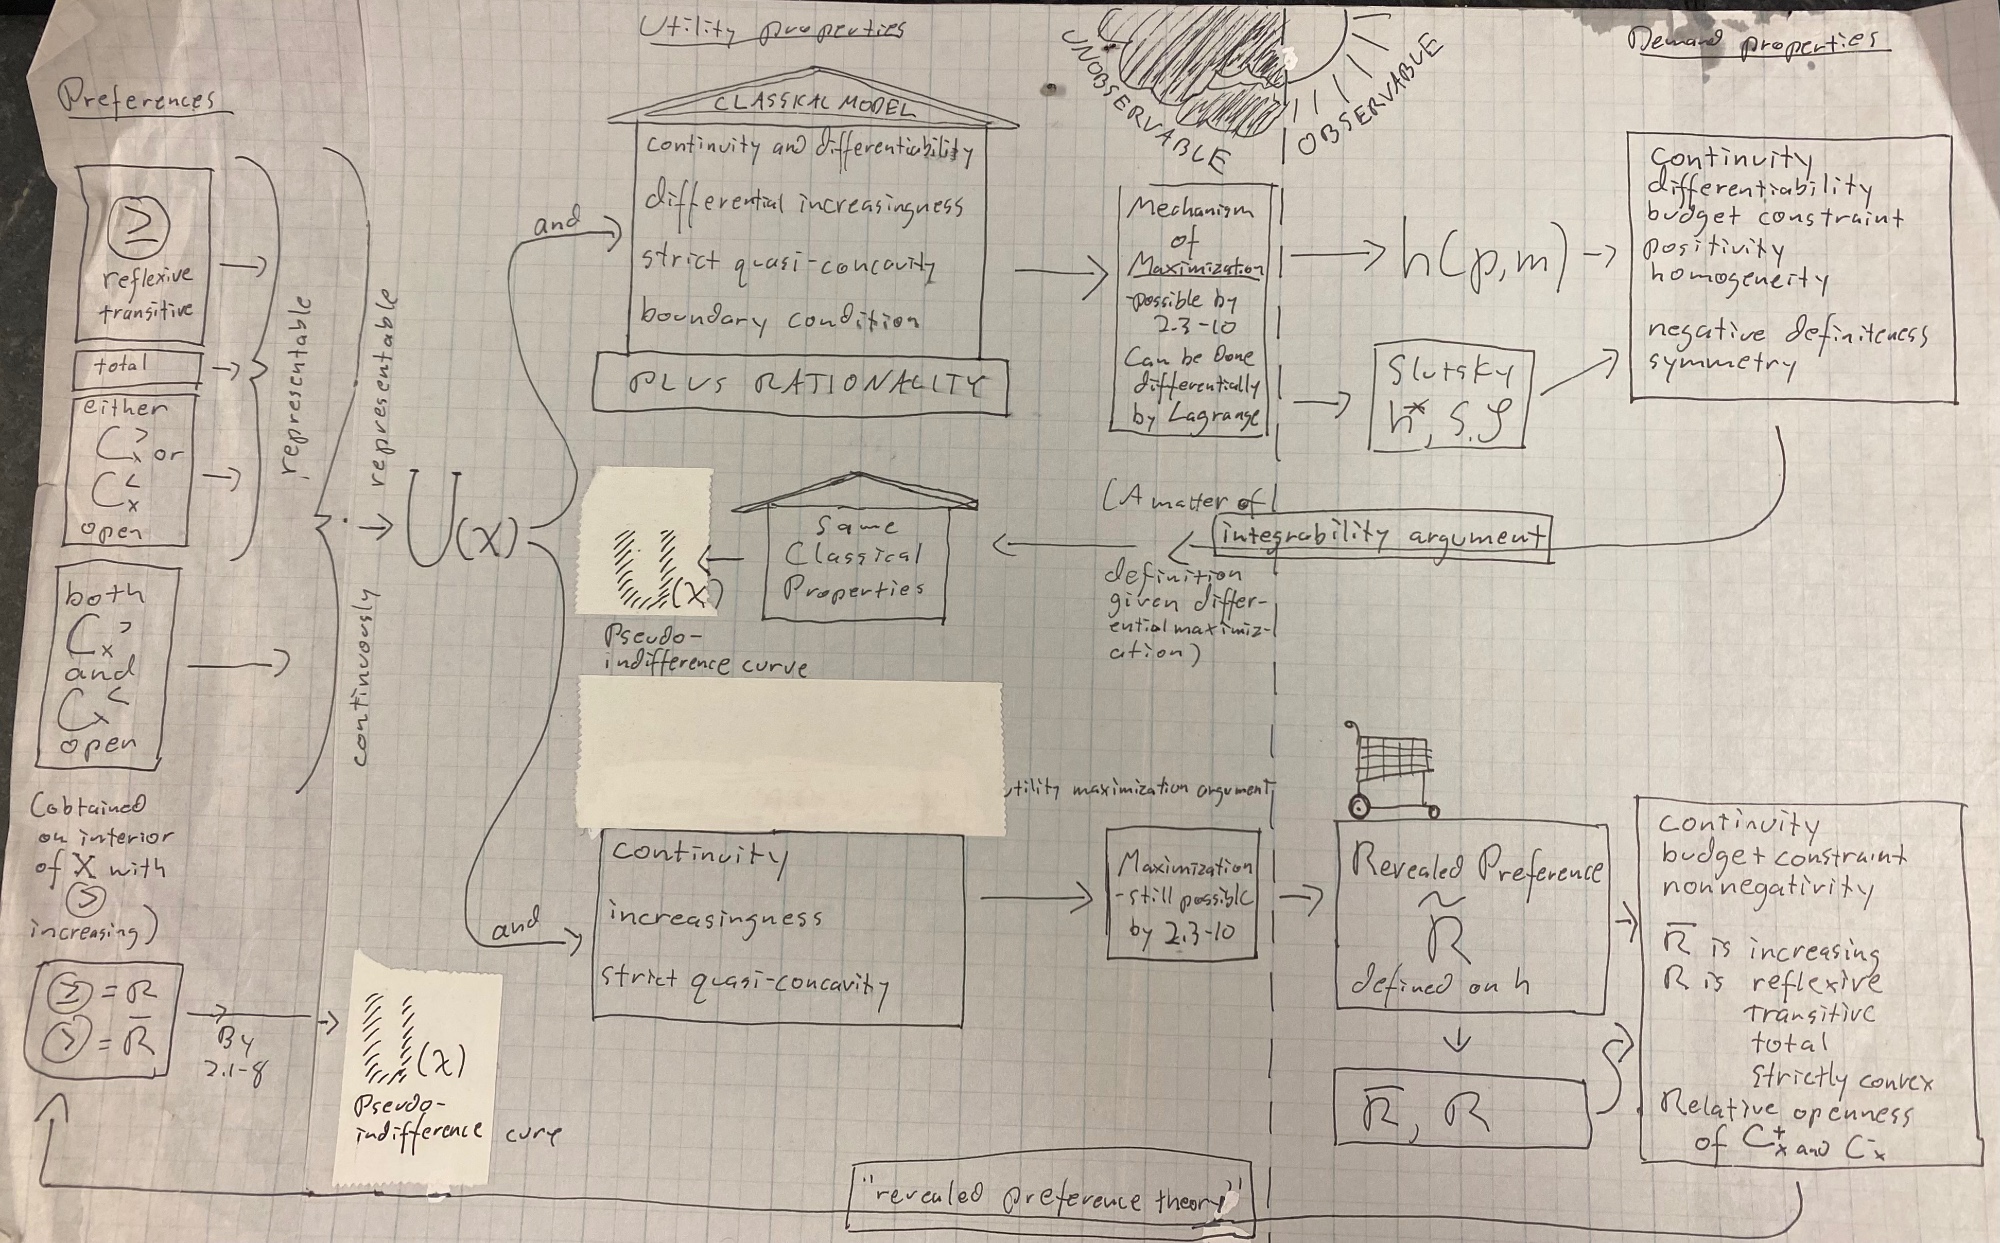 Preferences
≥
reflexive
transitive
total
either
C>x or
C<x
open
both
C>x
and
C<x
open
(obtained
on interior
of X with
>
increasing)
≥ = R
> = R̄
By
2.1-8
U(x)
Pseudo-
indifference curve
representable
continuously representable
U(x)
and
and
Utility properties
CLASSICAL MODEL
continuity and differentiability
differential increasingness
strict quasi-concavity
boundary condition
PLUS RATIONALITY
U(x)
Pseudo-
indifference curve
Same
Classical
Properties
tility maximization argument
continuity
increasingness
strict quasi-concavity
UNOBSERVABLE
OBSERVABLE
Mechanism
of
Maximization
-possible by
2.3-10
Can be Done
differentially
by Lagrange
h(p,m)
Slutsky
h*, S.
(A matter of
integrability argument
definition
given differ-
ential maximiz-
ation)
Maximization
-still possible
by 2.3-10
Revealed Preference
R̃
defined on h
R̄, R
Demand properties
continuity
differentiability
budget constraint
positivity
homogeneity
negative definiteness
symmetry
continuity
budget constraint
nonnegativity
R̄ is increasing
R is reflexive
transitive
total
strictly convex
Relative openness
of C+x and C-x
"revealed preference theory"